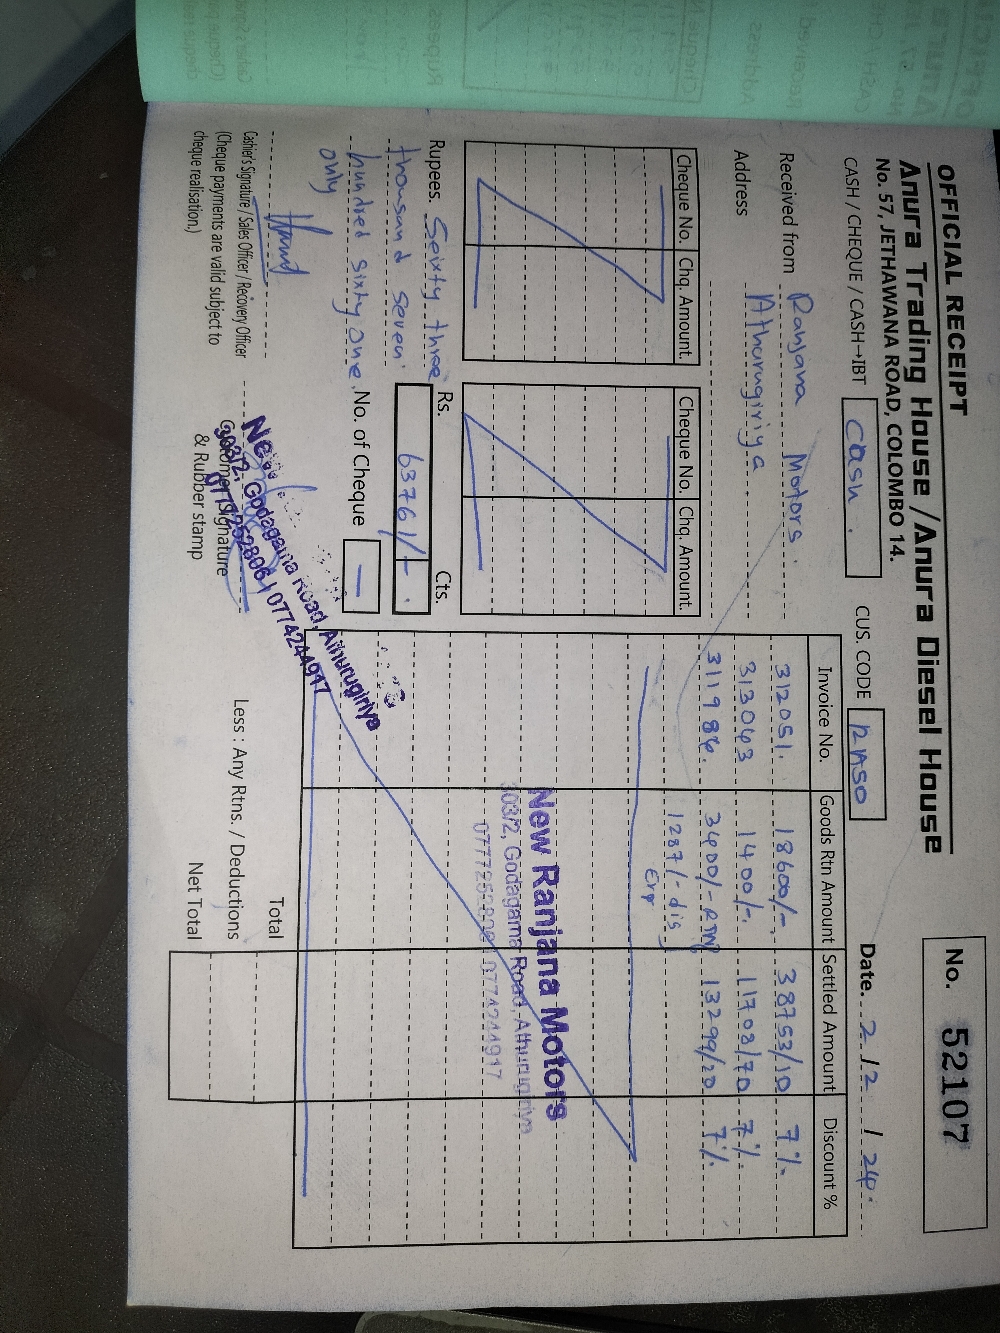 OFFICIAL RECEIPT
Anura Trading House / Anura Diesel House
No. 57, JETHAWANA ROAD, COLOMBO 14.
No. 52107
CASH / CHEQUE / CASH→IBT cash.
CUS. CODE
Date. 2/2/24.
Received from Ranjana Motors.
Address Athurugiriya
Cheque No. Chq. Amount. Cheque No. Chq. Amount.
Invoice No. Goods Rtn Amount Settled Amount Discount %
312051. 18600/-, 38753/10 7%.
313043 1400/-. 11708/70 7%.
311986. 3400/- 13299/20 7%.
1287/- dis
New Ranjana Motors
303/2, Godagama Road, Athurugiriya
0777252806 / 0774244917
Rupees. Seixty three
thousand seven
hundred sixty one
only
Rs. Cts.
63761/-
No. of Cheque —
Total
Less : Any Rtns. / Deductions
Net Total
Cashier's Signature / Sales Officer / Recovery Officer
(Cheque payments are valid subject to
cheque realisation.)
Customer Signature
& Rubber stamp
New
303/2, Godagama Road, Athurugiriya
0777252806 / 0774244917